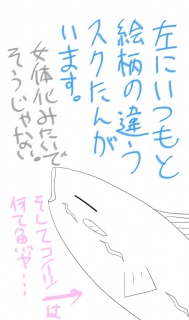 左にいつもと
絵柄の違う
スクたんが
います。
女体化みたいで
そうじゃない。
そしてコイツは
何て魚だ…